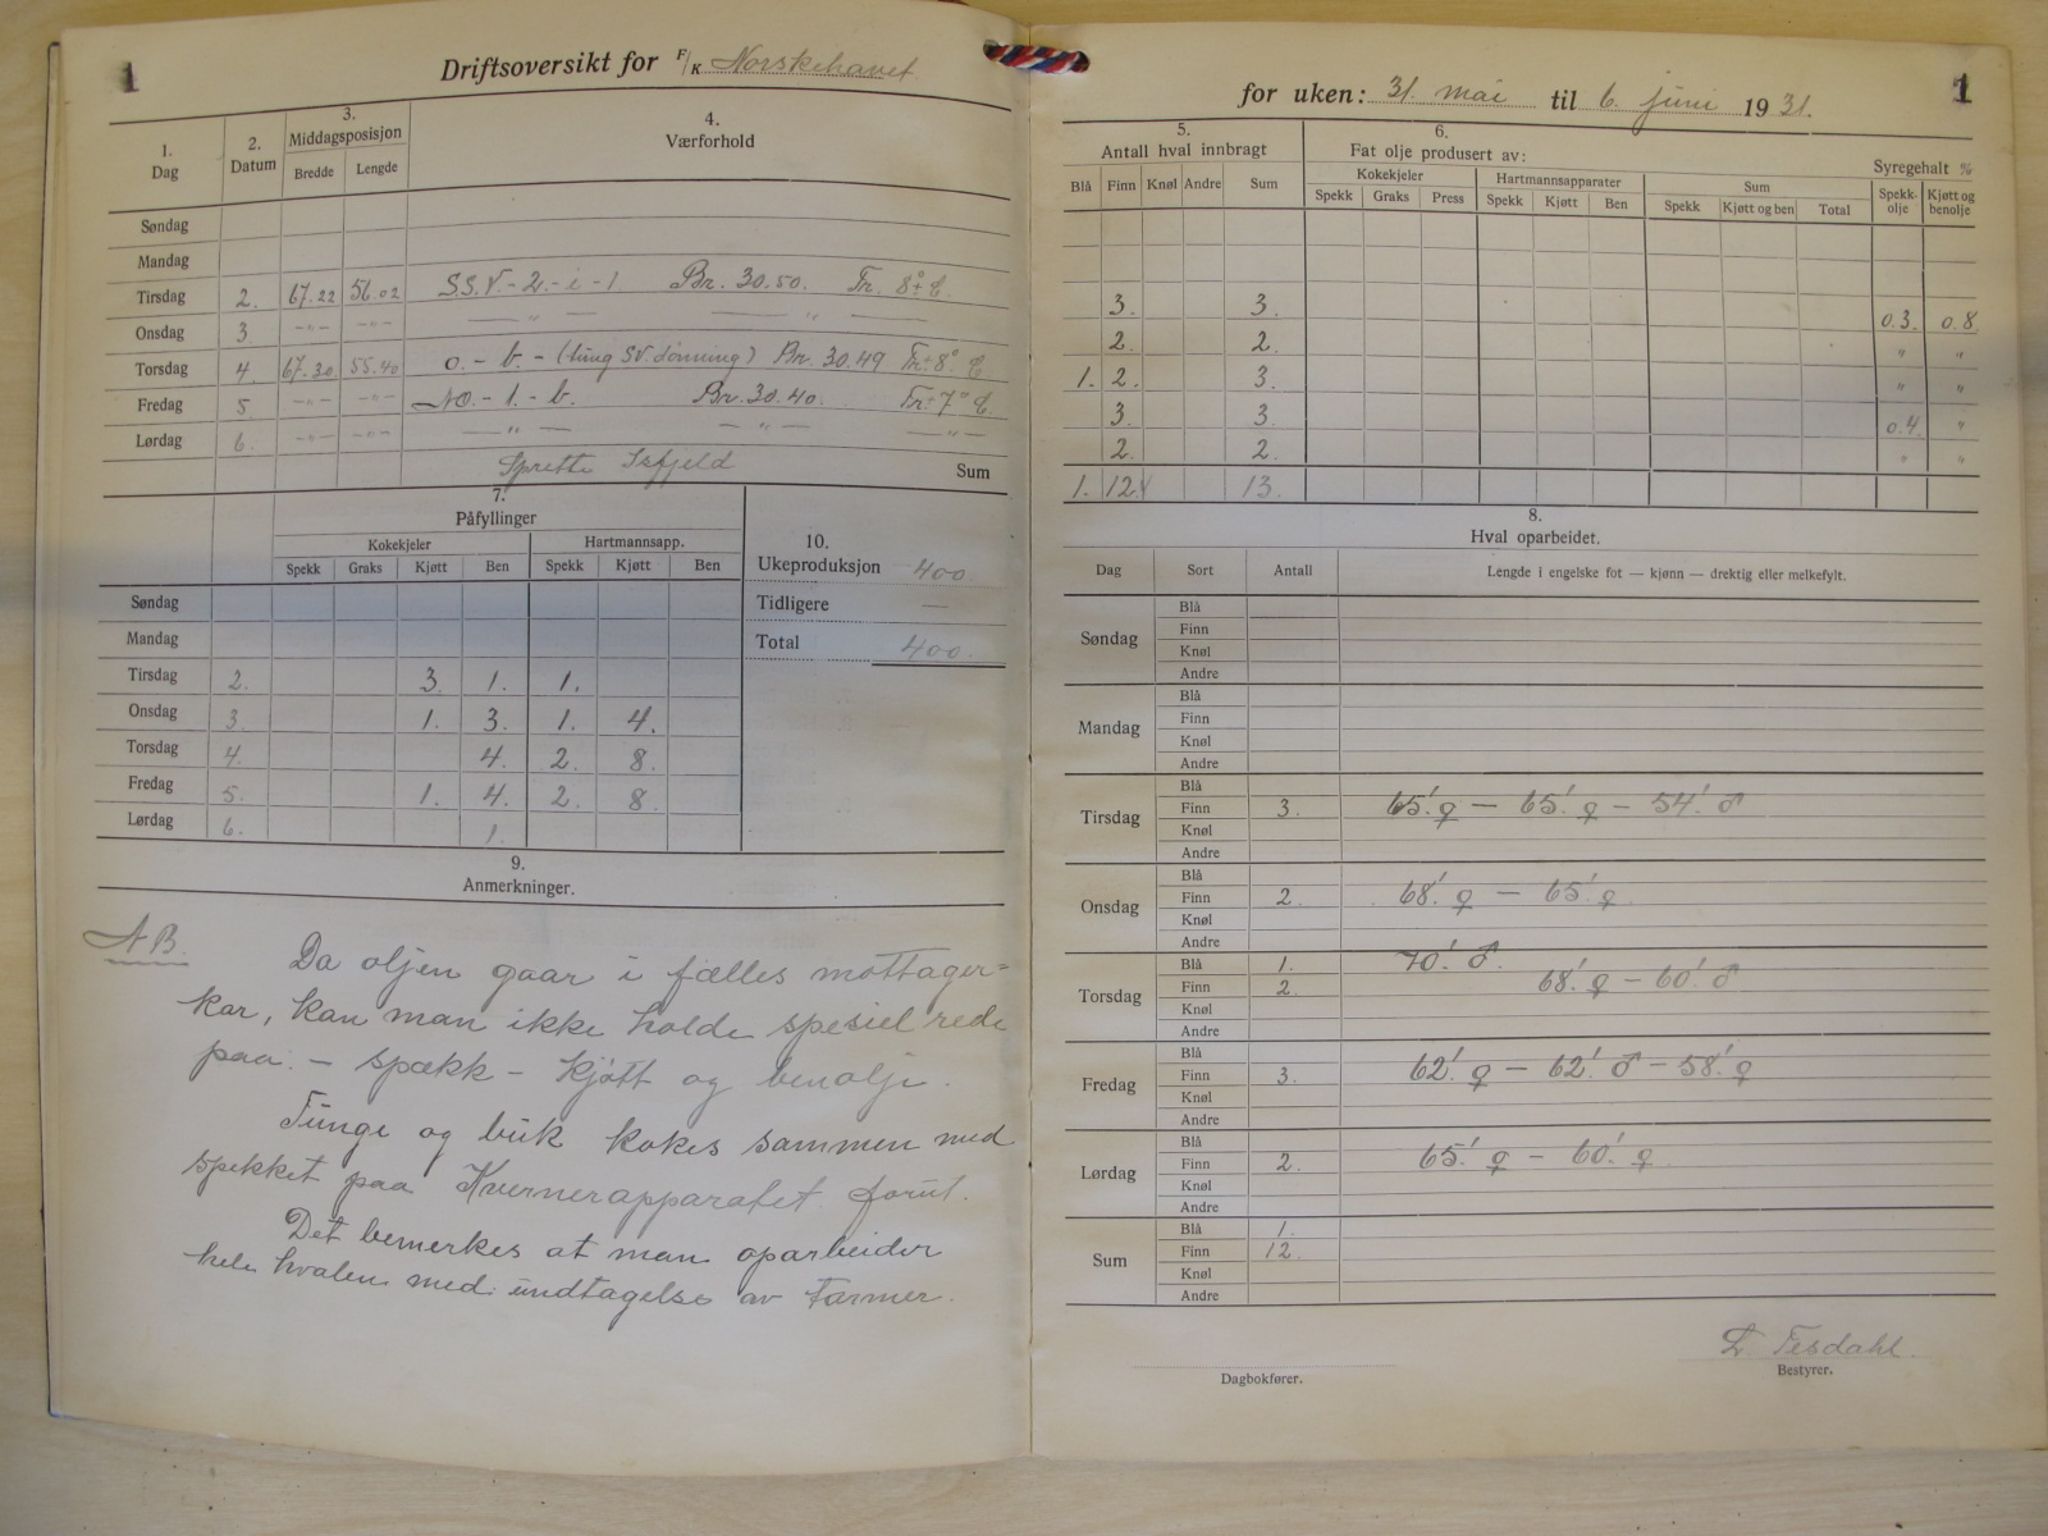 1
Driftsoversikt for F/K Norskehavet
1. Dag
2. Datum
3. Middagsposisjon
Bredde Lengde
4. Værforhold
Søndag
Mandag
Tirsdag 2. 67.22 56.02 S.S.V.-2.-i-1. Br. 30.50. Tr. 8°± C.
Onsdag 3. -"- -"- -"- -"-
Torsdag 4. 67.30. 55.40 0.-b.-(tung SV. dønning) Br. 30.49 Tr.± 8° C
Fredag 5. -"- -"- NO.-1.-b. Br. 30.40. Tr.± 7° C.
Lørdag 6. -"- -"- -"- -"- -"-
Spredte Isfjeld Sum
7. Påfyllinger
Kokekjeler Hartmannsapp.
Spekk Graks Kjøtt Ben Spekk Kjøtt Ben
Søndag
Mandag
Tirsdag 2. 3. 1. 1.
Onsdag 3. 1. 3. 1. 4.
Torsdag 4. 4. 2. 8.
Fredag 5. 1. 4. 2. 8.
Lørdag 6. 1.
10.
Ukeproduksjon 400.
Tidligere —
Total 400.
9.
Anmerkninger.
NB. Da oljen gaar i fælles mottager=
kar, kan man ikke holde spesiel rede
paa: - spækk - kjøtt og benolje.
Tunge og buk kokes sammen med
spekket paa Kvernerapparatet forut.
Det bemerkes at man oparbeider
hele hvalen med undtagelse av tarmer.
for uken: 31. mai til 6. juni 1931.
1
5.
Antall hval innbragt
Blå Finn Knøl Andre Sum
6.
Fat olje produsert av:
Kokekjeler Hartmannsapparater Sum
Spekk Graks Press Spekk Kjøtt Ben Spekk Kjøtt og ben Total
Syregehalt %
Spekk-olje Kjøtt og benolje
3. 3. 0.3. 0.8.
2. 2. " "
1. 2. 3. " "
3. 3. 0.4. "
2. 2. " "
1. 12. 13.
8.
Hval oparbeidet.
Dag Sort Antall Lengde i engelske fot — kjønn — drektig eller melkefylt.
Søndag
Blå
Finn
Knøl
Andre
Mandag
Blå
Finn
Knøl
Andre
Tirsdag
Blå
Finn 3. 65'. ♀ — 65'. ♀ — 54'. ♂
Knøl
Andre
Onsdag
Blå
Finn 2. 68'. ♀ — 65'. ♀
Knøl
Andre
Torsdag
Blå 1. 70'. ♂.
Finn 2. 68'. ♀ — 60'. ♂
Knøl
Andre
Fredag
Blå
Finn 3. 62'. ♀ — 62'. ♂ — 58'. ♀
Knøl
Andre
Lørdag
Blå
Finn 2. 65'. ♀ — 60'. ♀
Knøl
Andre
Sum
Blå 1.
Finn 12.
Knøl
Andre
Dagbokfører.
L. Tesdahl.
Bestyrer.